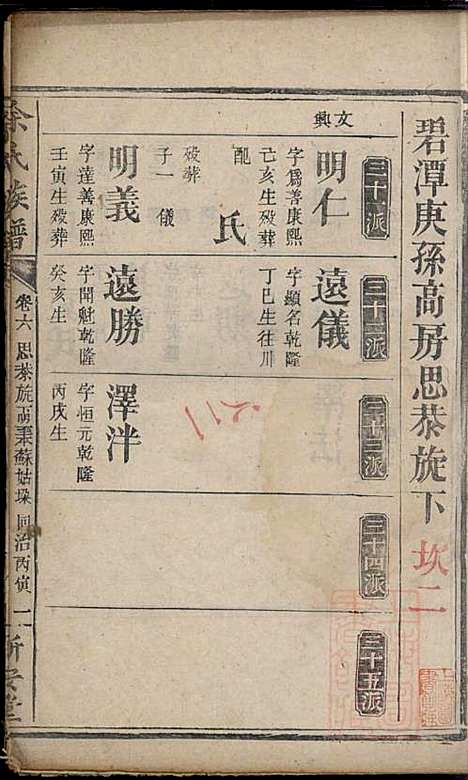 碧潭庚孫高房思恭旋下 坎二
三十一派
三十二派
三十三派
三十四派
三十五派
文興
明仁
字爲善康熙
己亥生歿葬
配 氏
歿葬
子一 儀
明義
字達善康熙
壬寅生歿葬
遠儀
字顯名乾隆
丁巳生往川
遠勝
字開魁乾隆
癸亥生
澤泮
字恒元乾隆
丙戌生
余氏族譜
卷六 思恭旋高秉蘇姑垛 同治丙寅